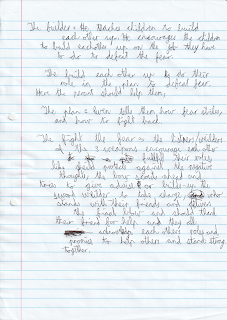 The builder = He teaches children to build
each other up. He encourages the children
to build eachother up on the job they have
to do to defeat the fear.
The build each other up to do their
role in the plan to defeat fear.
Here the parent should help them.
The plan = Twin tells them how fear strikes,
and how to fight back.
The fight the fear = the
of The 3 weapons encourage each other
to fulfill their roles,
like shield protect against the negative
thoughts, the bow sends ahead and
tries to give advice or builds up the
sword wielder to take charge, who
stands with their friends and deliver
the final blow and should thank
their friend for help and they all
acknowledge each others roles and
promise to help others and stand strong
together.